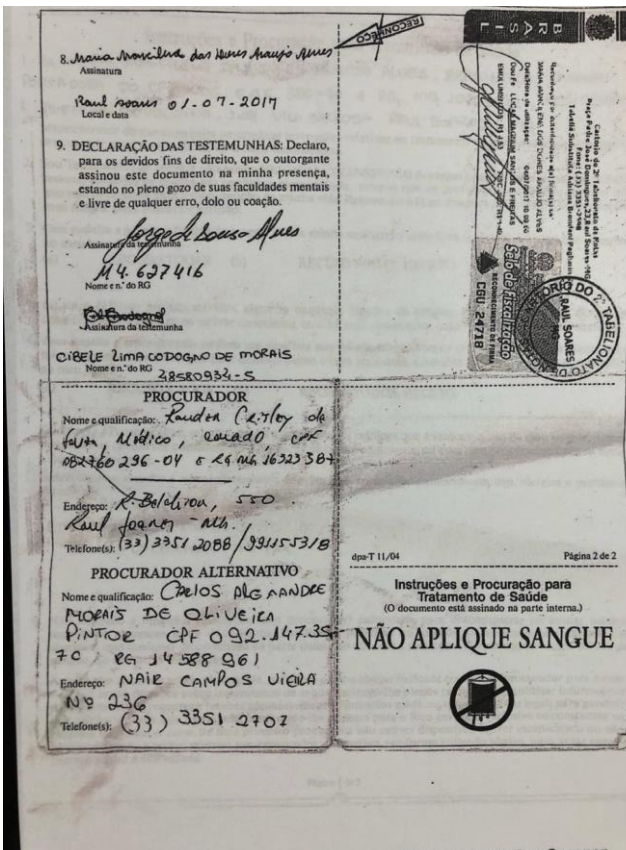 8. Maria das Araujo Alves
Assinatura
Raul Soares 01-07-2017
Local e data
9. DECLARAÇÃO DAS TESTEMUNHAS: Declaro,
para os devidos fins de direito, que o outorgante
assinou este documento na minha presença,
estando no pleno gozo de suas faculdades mentais
e livre de qualquer erro, dolo ou coação.
Jorge de Sousa Alves
Assinatura da testemunha
M4.627416
Nome e n.º do RG
Assinatura da testemunha
CIBELE LIMA CODOGNO DE MORAIS
Nome e n.º do RG 28580934-S
PROCURADOR
Nome e qualificação:
Médico, CPF
Endereço: 550
Raul Soares - MG.
Telefone(s): (33) 3351 2088 / 991155318
PROCURADOR ALTERNATIVO
Nome e qualificação: CARLOS ALEXANDRE
MORAIS DE OLIVEIRA
PINTOR CPF 092.147.35
70 RG 14588961
Endereço: NAIR CAMPOS VIEIRA
Nº 236
Telefone(s): (33) 3351 2702
RECONHEÇO
BRASIL
Cartório do 2º Tabelionato de Notas
Selo de Fiscalização
RECONHECIMENTO DE FIRMA
CGU 24718
CARTÓRIO DO 2º TABELIONATO DE NOTAS
RAUL SOARES
MG
dpa-T 11/04
Página 2 de 2
Instruções e Procuração para
Tratamento de Saúde
(O documento está assinado na parte interna.)
NÃO APLIQUE SANGUE